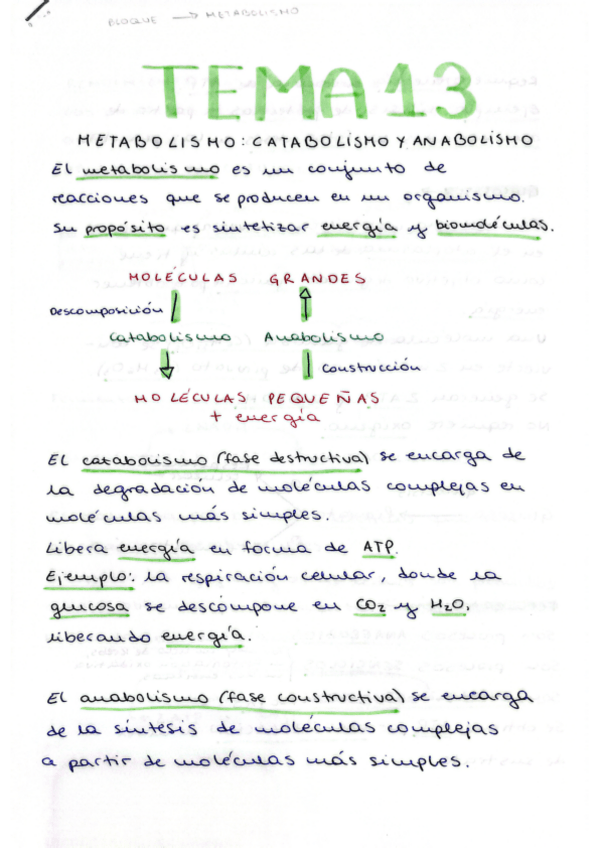 BLOQUE → METABOLISMO
TEMA 13
METABOLISMO: CATABOLISMO Y ANABOLISMO
El metabolismo es un conjunto de
reacciones que se producen en un organismo.
Su propósito es sintetizar energía y biomoléculas.
MOLÉCULAS GRANDES
Descomposición
Catabolismo Anabolismo
construcción
MOLÉCULAS PEQUEÑAS
+ energía
El catabolismo (fase destructiva) se encarga de
la degradación de moléculas complejas en
moléculas más simples.
Libera energía en forma de ATP.
Ejemplo: la respiración celular, donde la
glucosa se descompone en CO₂ y H₂O,
liberando energía.
El anabolismo (fase constructiva) se encarga
de la síntesis de moléculas complejas
a partir de moléculas más simples.